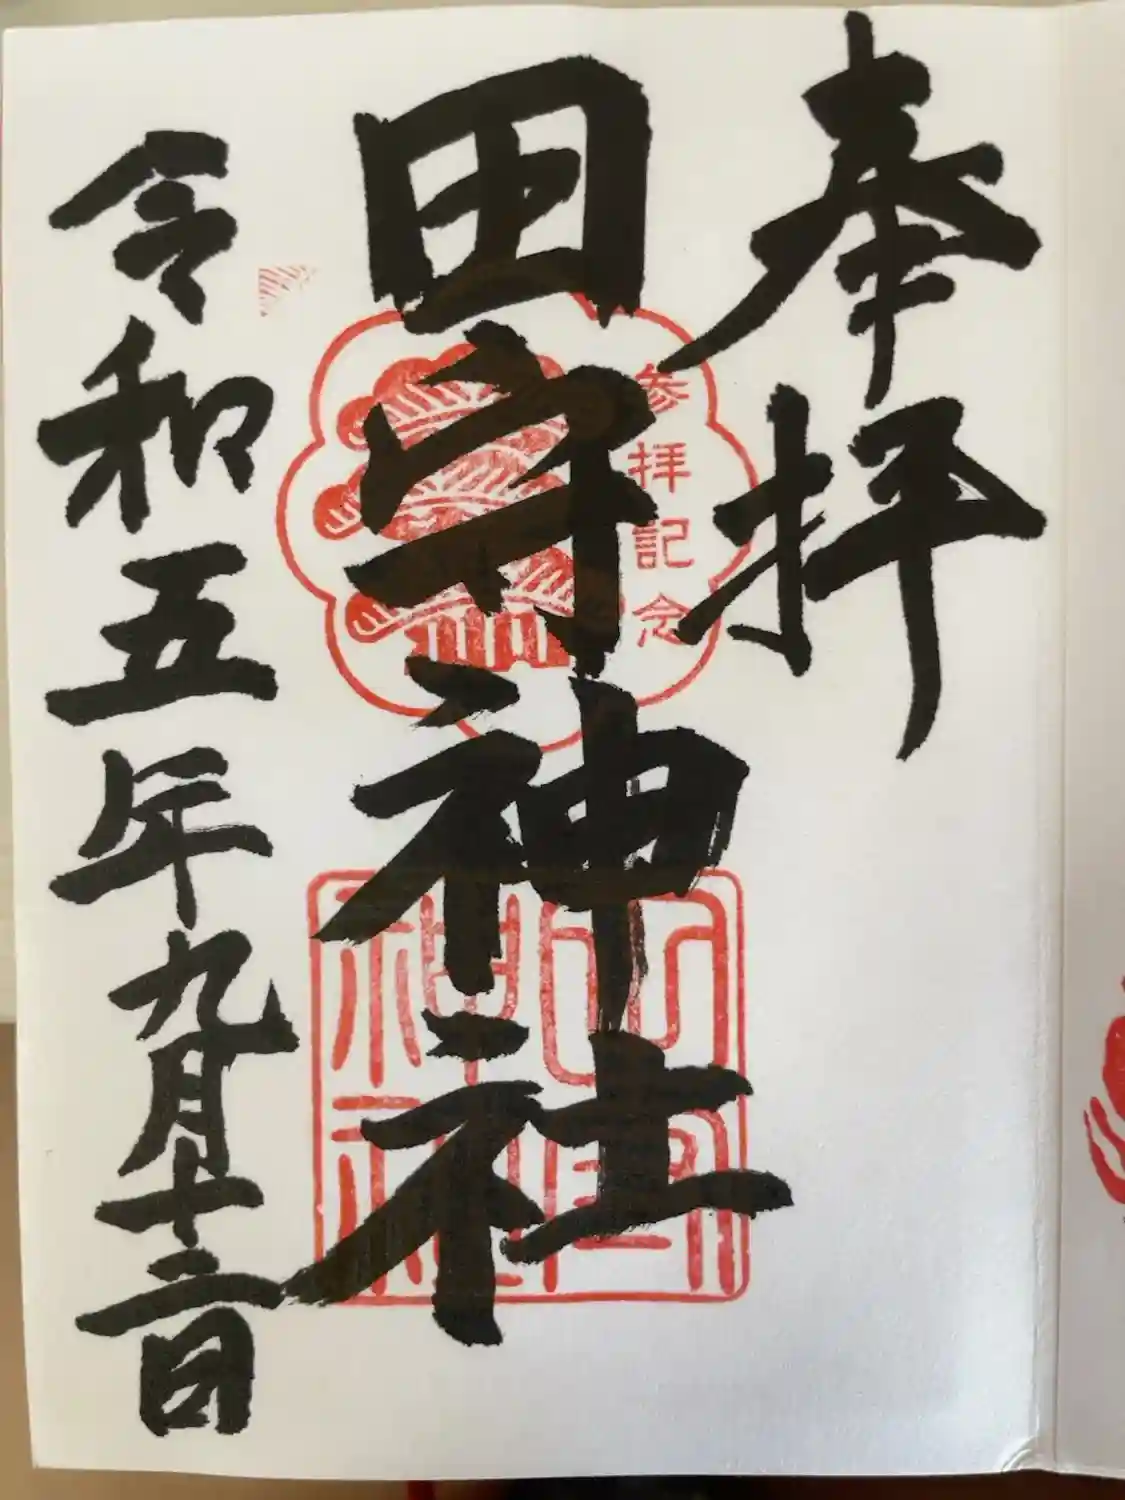 奉拝
田守神社
令和五年九月十二日
参拝記念